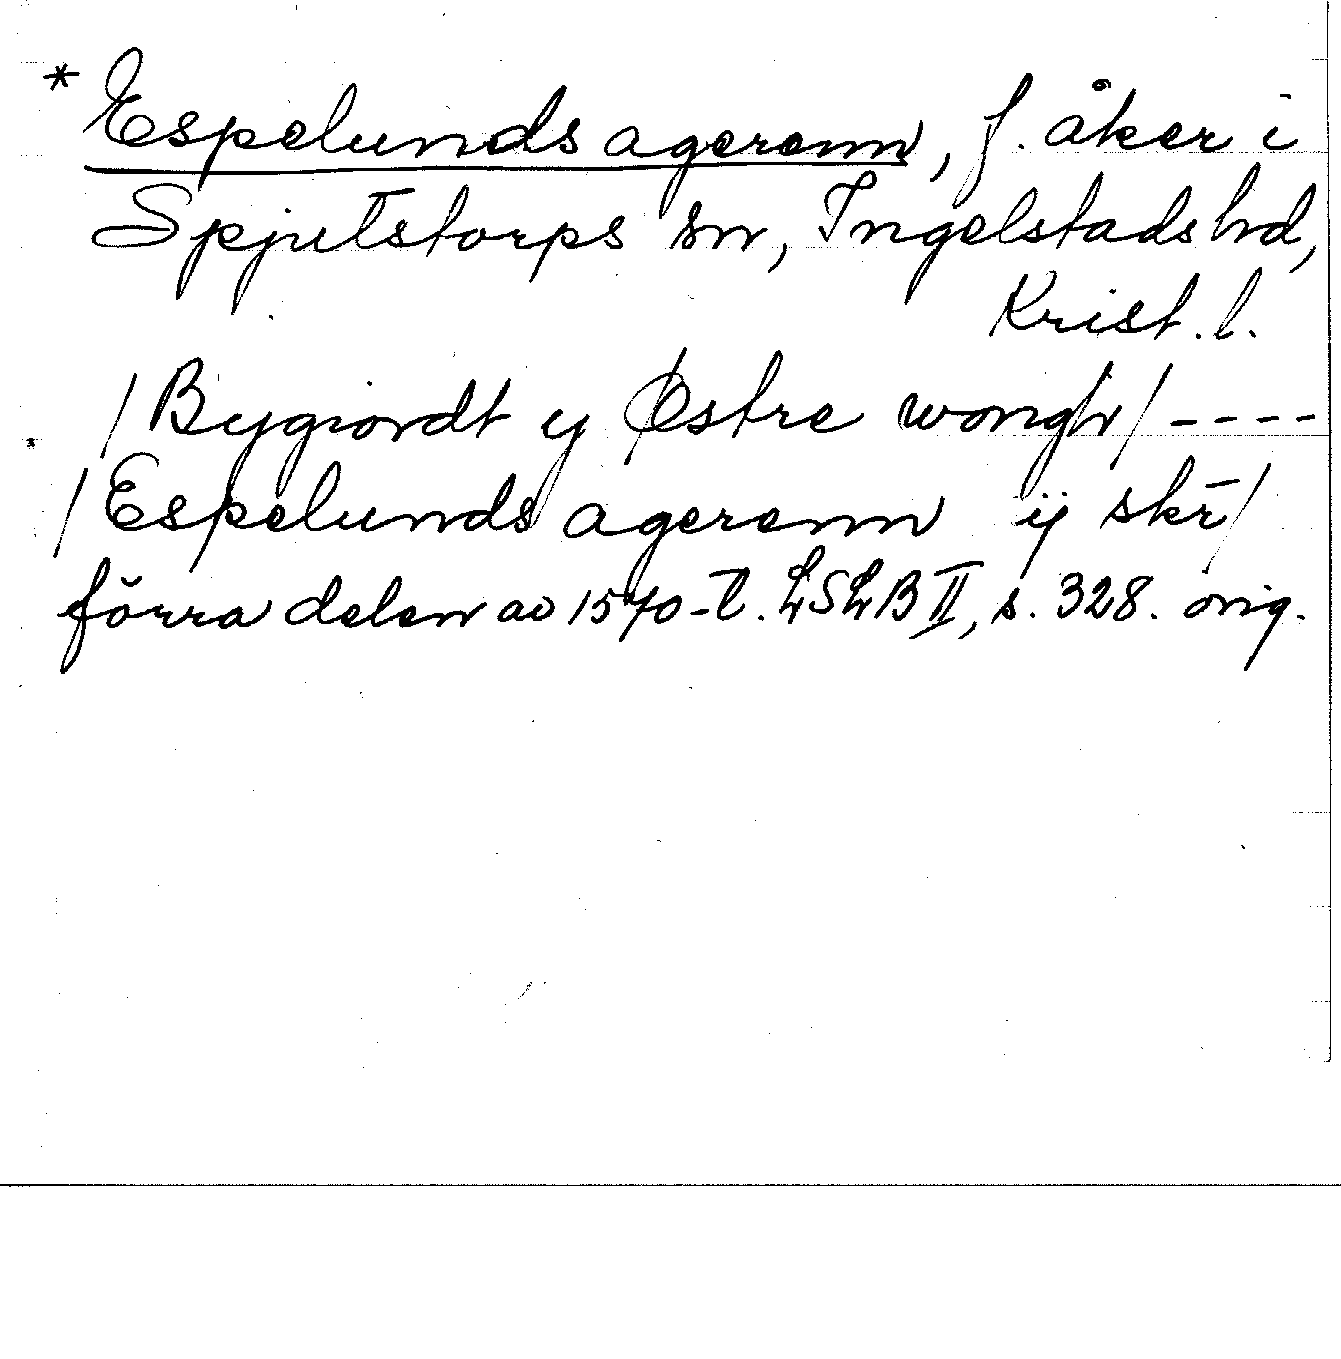 * Espelunds agerenn, f. åker i
Spjutstorps sn, Ingelstads hd,
Krist. l.
/Bygiordt y Østre wongh/ ----
/Espelunds agerenn ij skr̄/
förra delen av 1570-t. LSLB II, s. 328. orig.